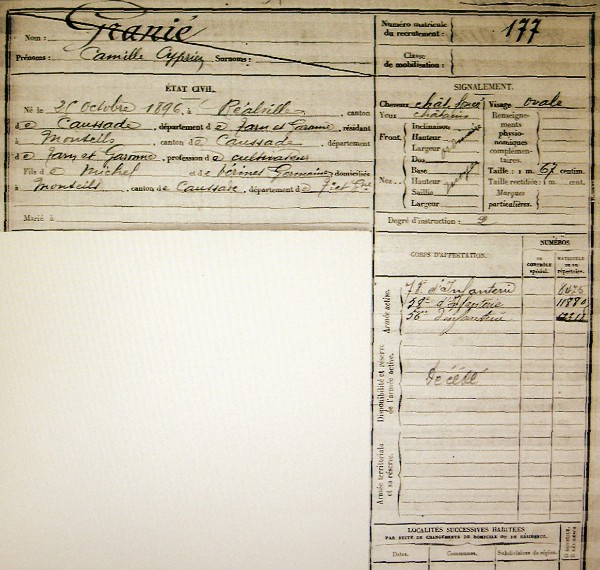 Nom : Granié
Prénoms : Camille Cyprien Surnoms :
Numéro matricule
du recrutement : 177
Classe
de mobilisation :
ÉTAT CIVIL.
Né le 26 Octobre 1896, à Réalville, canton
de Caussade, département de Tarn et Garonne, résidant
à Monteils, canton de Caussade, département
de Tarn et Garonne, profession de cultivateur
Fils de Michel et de Germaine, domiciliés
à Monteils, canton de Caussade, département de T et Gne
Marié à
SIGNALEMENT.
Cheveux chât. foncé Visage ovale
Yeux châtains
Front. Inclinaison
Hauteur
Largeur
Nez. Dos
Base
Hauteur
Saillie
Largeur
Renseigne-
ments
physio-
nomiques
complémen-
taires.
Taille : 1 m. 67 centim.
Taille rectifiée : 1 m. cent.
Marques
particulières.
Degré d'instruction : 2
CORPS D'AFFECTATION.
NUMÉROS
DE CONTRÔLE spécial.
MATRICULE DE OU répertoire.
Armée active.
7e d'Infanterie
58e d'Infanterie 11880
56e d'infanterie
Disponibilité et réserve
de l'armée active.
Décédé
Armée territoriale
et sa réserve.
LOCALITÉS SUCCESSIVES HABITÉES
PAR SUITE DE CHANGEMENTS DE DOMICILE OU DE RÉSIDENCE.
Dates. Communes. Subdivisions de région.
D DOMICILE.
R RÉSIDENCE